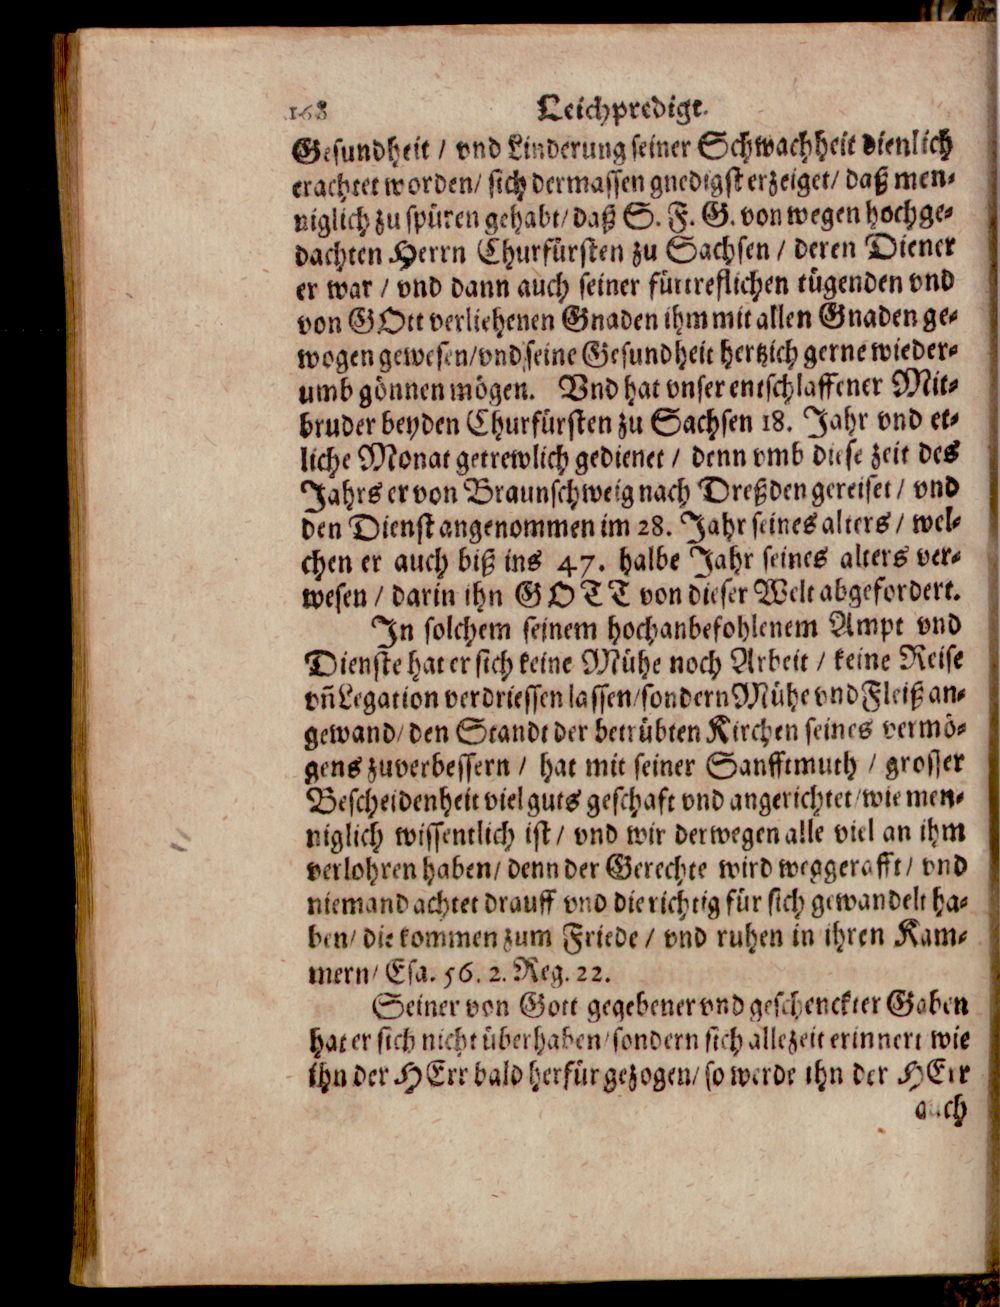 168 Leichpredigt.
Gesundheit / vnd Linderung seiner Schwachheit dienlich
erachtet worden / sich dermassen gnedigst erzeiget / daß men-
niglich zu spüren gehabt / daß S. F. G. von wegen hochge-
dachten Herrn Churfürsten zu Sachsen / deren Diener
er war / vnd dann auch seiner fürtreflichen tügenden vnd
von GOtt verliehenen Gnaden ihm mit allen Gnaden ge-
wogen gewesen / vnd seine Gesundheit hertzich gerne wieder-
umb gönnen mögen. Vnd hat vnser entschlaffener Mit-
bruder beyden Churfürsten zu Sachsen 18. Jahr vnd et-
liche Monat getrewlich gedienet / denn vmb diese zeit des
Jahrs er von Braunschweig nach Dreßden gereiset / vnd
den Dienst angenommen im 28. Jahr seines alters / wel-
chen er auch biß ins 47. halbe Jahr seines alters ver-
wesen / darin ihn GOTT von dieser Welt abgefordert.
In solchem seinem hochanbefohlenem Ampt vnd
Dienste hat er sich keine Mühe noch Arbeit / keine Reise
vñ Legation verdriessen lassen / sondern Mühe vnd Fleiß an-
gewand / den Standt der betrübten Kirchen seines vermö-
gens zuverbessern / hat mit seiner Sanfftmuth / grosser
Bescheidenheit viel guts geschaft vnd angerichtet / wie men-
niglich wissentlich ist / vnd wir derwegen alle viel an ihm
verlohren haben / denn der Gerechte wird weggerafft / vnd
niemand achtet drauff vnd die richtig für sich gewandelt ha-
ben / die kommen zum Friede / vnd ruhen in ihren Kam-
mern / Esa. 56. 2. Reg. 22.
Seiner von Gott gegebener vnd geschenckter Gaben
hat er sich nicht überhaben / sondern sich allezeit erinnert wie
ihn der HErr bald herfür gezogen / so werde ihn der HErr
auch